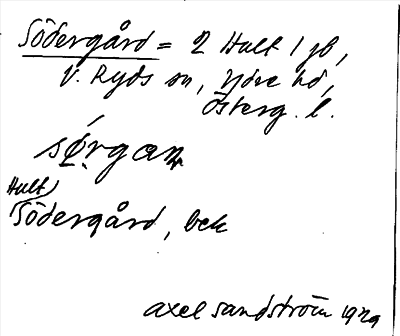 Södergård = 2 Hult 1 jb,
V. Ryds sn, Ydre hd,
Österg. l.
sø̨rgan
Hult
Södergård, bck
Axel Sandström 1929